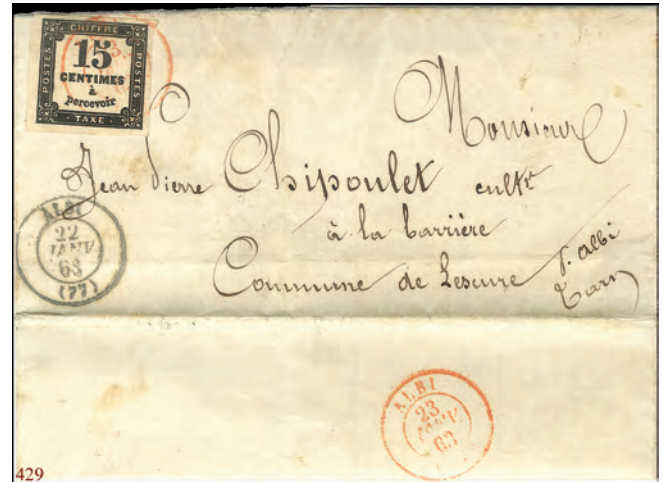 CHIFFRE
POSTES
15
CENTIMES
à
percevoir
POSTES
TAXE
Monsieur
Jean Pierre Chipoulet cultr
à la barrière
Commune de Lescure p. albi
Tarn
ALBI
22
JANV
63
(77)
ALBI
23
JANV.
63
429